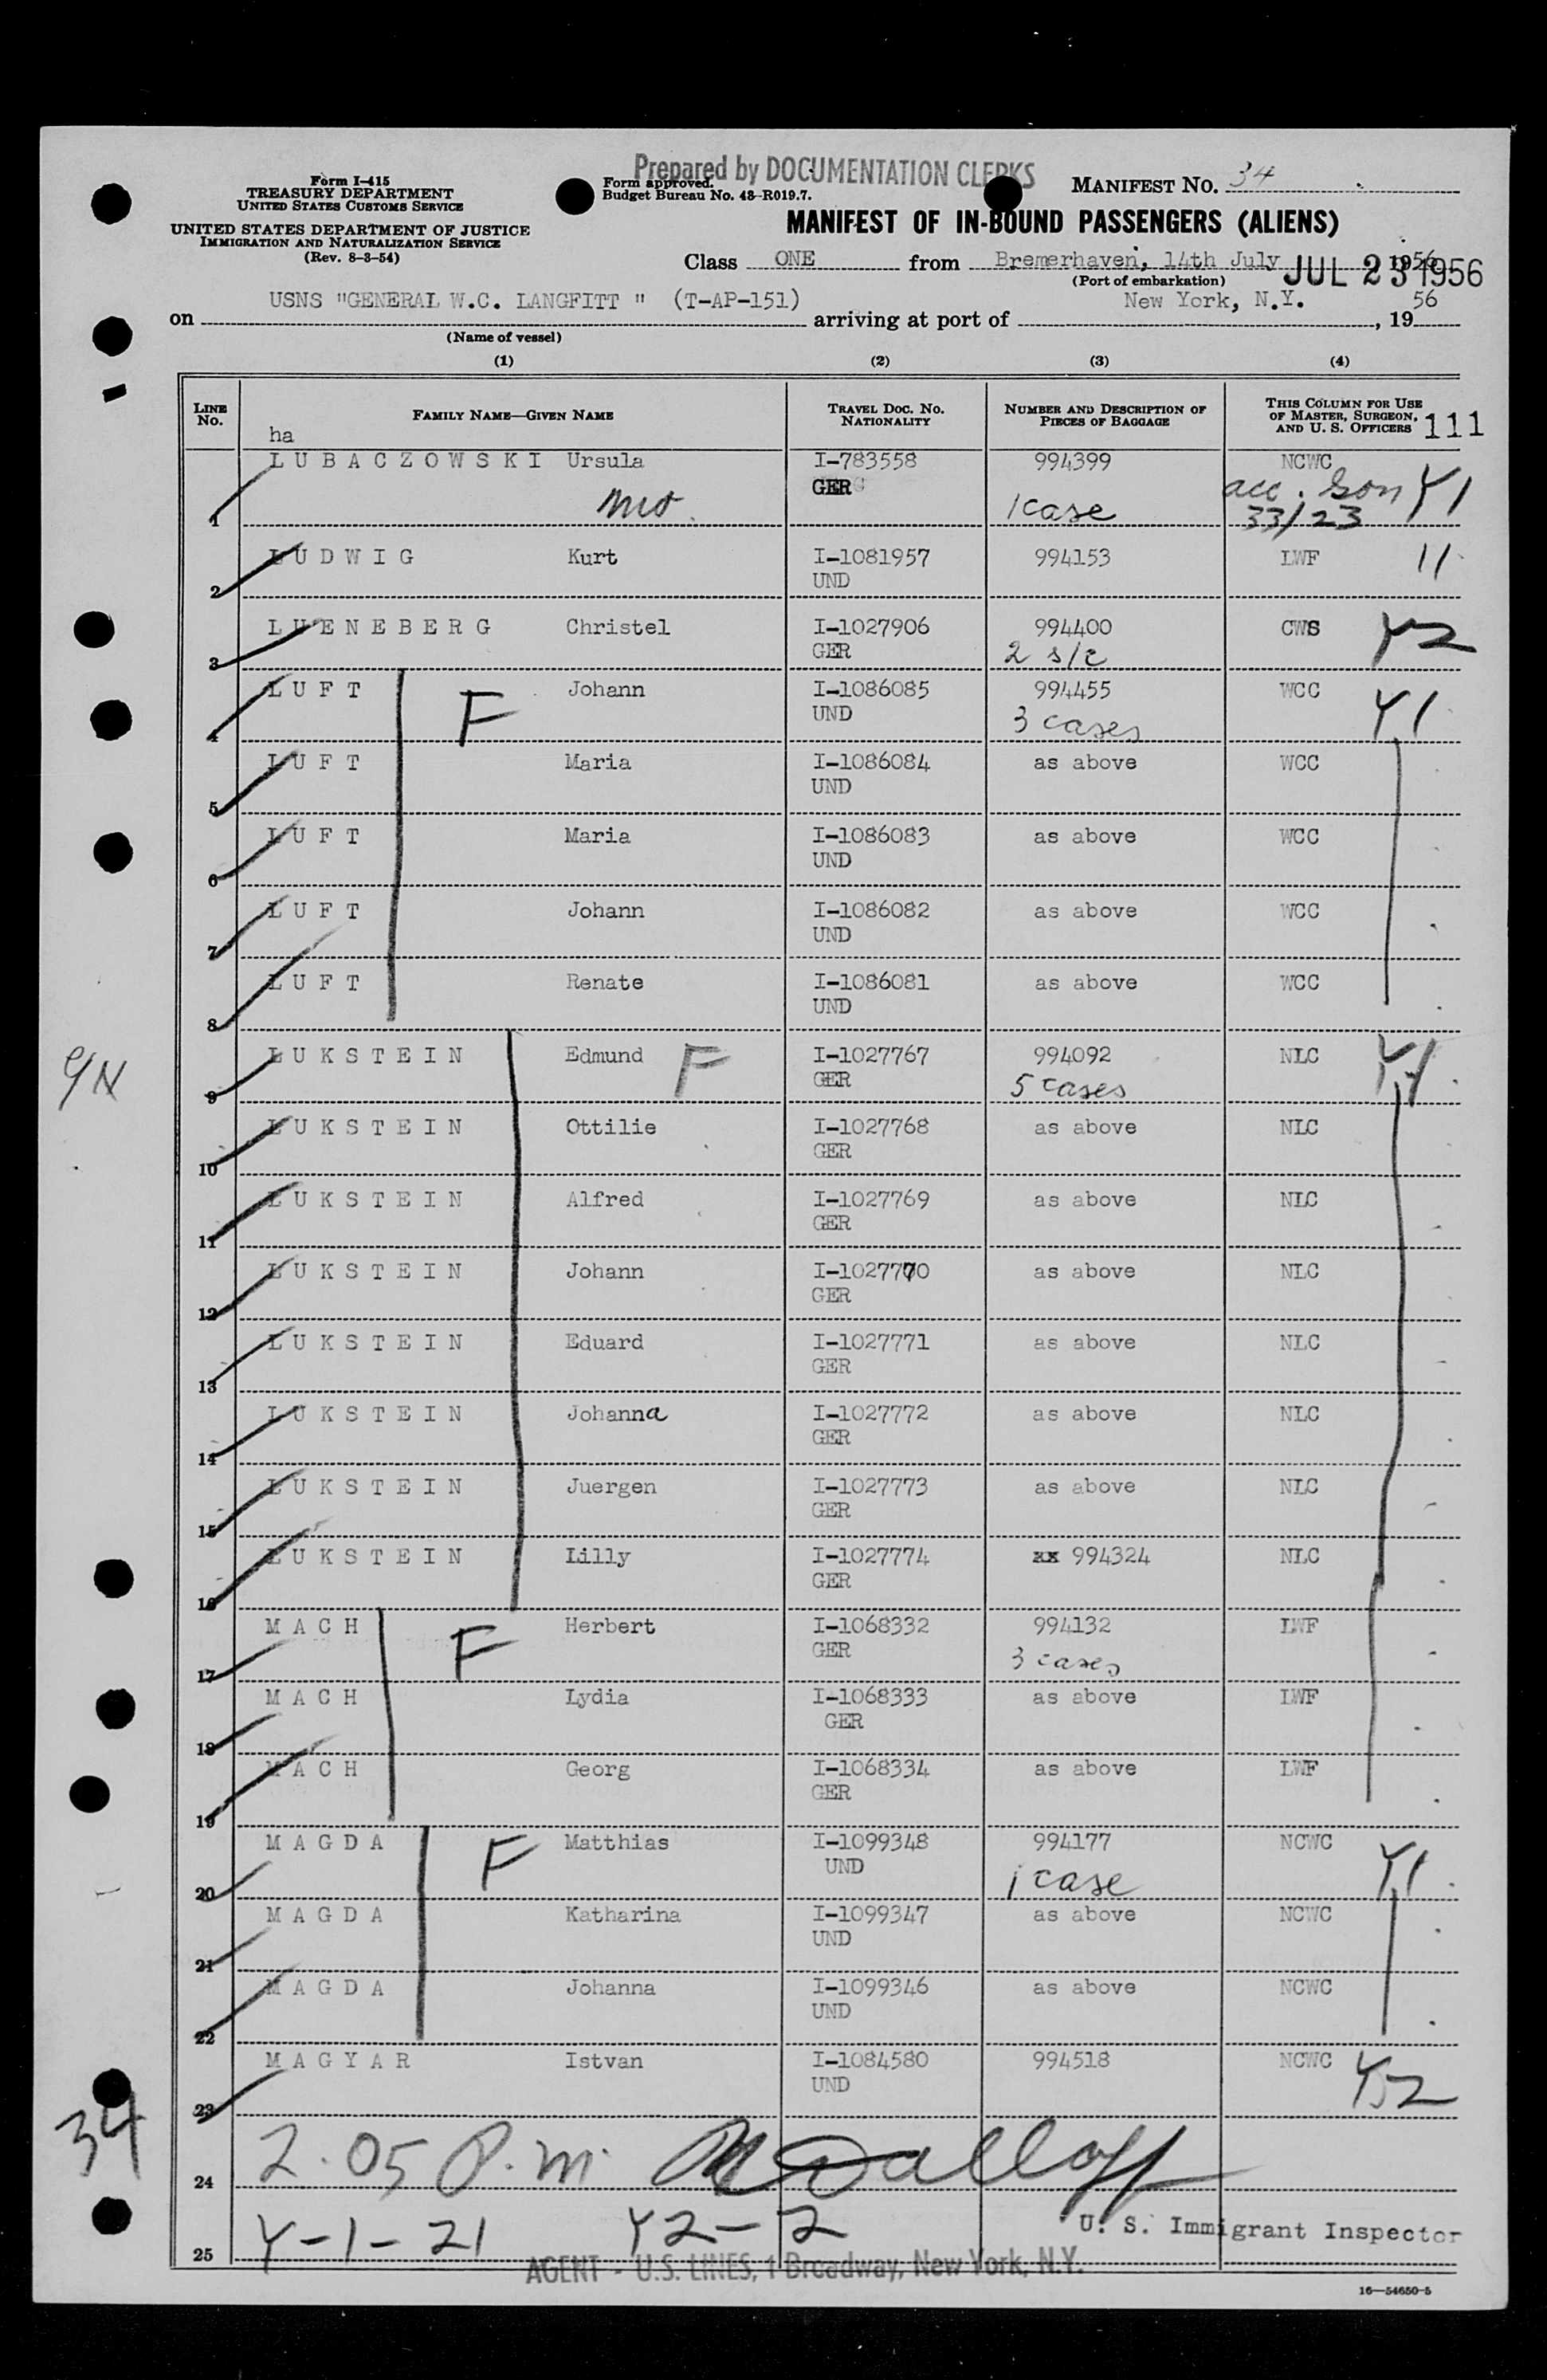 Prepared by DOCUMENTATION CLERKS
Form I-415
TREASURY DEPARTMENT
UNITED STATES CUSTOMS SERVICE
UNITED STATES DEPARTMENT OF JUSTICE
IMMIGRATION AND NATURALIZATION SERVICE
(Rev. 8-3-54)
Form approved.
Budget Bureau No. 43-R019.7.
MANIFEST NO. 34
MANIFEST OF IN-BOUND PASSENGERS (ALIENS)
Class ONE from Bremerhaven, 14th July 1956
JUL 23 1956
(Port of embarkation)
on USNS "GENERAL W.C. LANGFITT " (T-AP-151) arriving at port of New York, N.Y. , 1956
(Name of vessel)
(1) (2) (3) (4)
LINE No. FAMILY NAME—GIVEN NAME TRAVEL DOC. NO. NATIONALITY NUMBER AND DESCRIPTION OF PIECES OF BAGGAGE THIS COLUMN FOR USE OF MASTER, SURGEON, AND U. S. OFFICERS 111
ha
LUBACZOWSKI Ursula I-783558 994399 NCWC
1 mo. GER 1 case acc. son 33/23 Y1
LUDWIG Kurt I-1081957 994153 LWF 11
2 UND
LUENEBERG Christel I-1027906 994400 CWS Y2
3 GER 2 s/c
LUFT F Johann I-1086085 994455 WCC Y1
4 UND 3 cases
LUFT Maria I-1086084 as above WCC
5 UND
LUFT Maria I-1086083 as above WCC
6 UND
LUFT Johann I-1086082 as above WCC
7 UND
LUFT Renate I-1086081 as above WCC
8 UND
LUKSTEIN Edmund F I-1027767 994092 NLC Y1
9 GER 5 cases
LUKSTEIN Ottilie I-1027768 as above NLC
10 GER
LUKSTEIN Alfred I-1027769 as above NLC
11 GER
LUKSTEIN Johann I-1027770 as above NLC
12 GER
LUKSTEIN Eduard I-1027771 as above NLC
13 GER
LUKSTEIN Johanna I-1027772 as above NLC
14 GER
LUKSTEIN Juergen I-1027773 as above NLC
15 GER
LUKSTEIN Lilly I-1027774 xx 994324 NLC
16 GER
MACH F Herbert I-1068332 994132 LWF
17 GER 3 cases
MACH Lydia I-1068333 as above LWF
18 GER
MACH Georg I-1068334 as above LWF
19 GER
MAGDA F Matthias I-1099348 994177 NCWC Y1
20 UND 1 case
MAGDA Katharina I-1099347 as above NCWC
21 UND
MAGDA Johanna I-1099346 as above NCWC
22 UND
MAGYAR Istvan I-1084580 994518 NCWC Y2
23 UND
34
24 2.05 P.m.
25 Y-1-21 Y2-2 U. S. Immigrant Inspector
AGENT - U.S. LINES, 1 Broadway, New York, N.Y.
16—54650-5